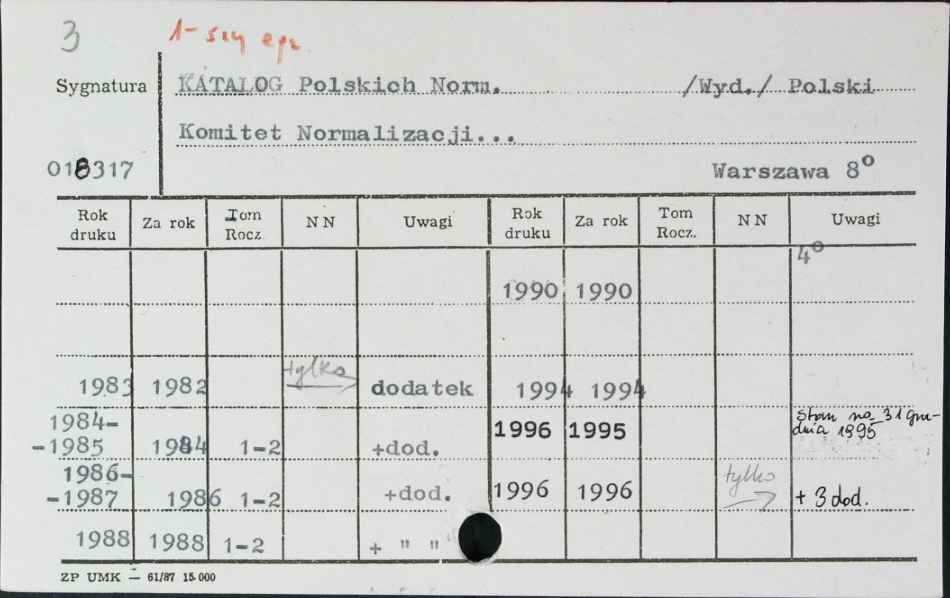 3
1-szy egz.
Sygnatura KATALOG Polskich Norm. /Wyd./ Polski
Komitet Normalizacji...
018317 Warszawa 8°
Rok druku Za rok Tom Rocz. NN Uwagi Rok druku Za rok Tom Rocz. NN Uwagi
4°
1990 1990
1983 1982 tylko dodatek 1994 1994
1984-
-1985 1984 1-2 +dod. 1996 1995 Stan na 31 gru-
dnia 1995
1986-
-1987 1986 1-2 +dod. 1996 1996 tylko + 3 dod.
1988 1988 1-2 + " "
ZP UMK — 61/87 15.000